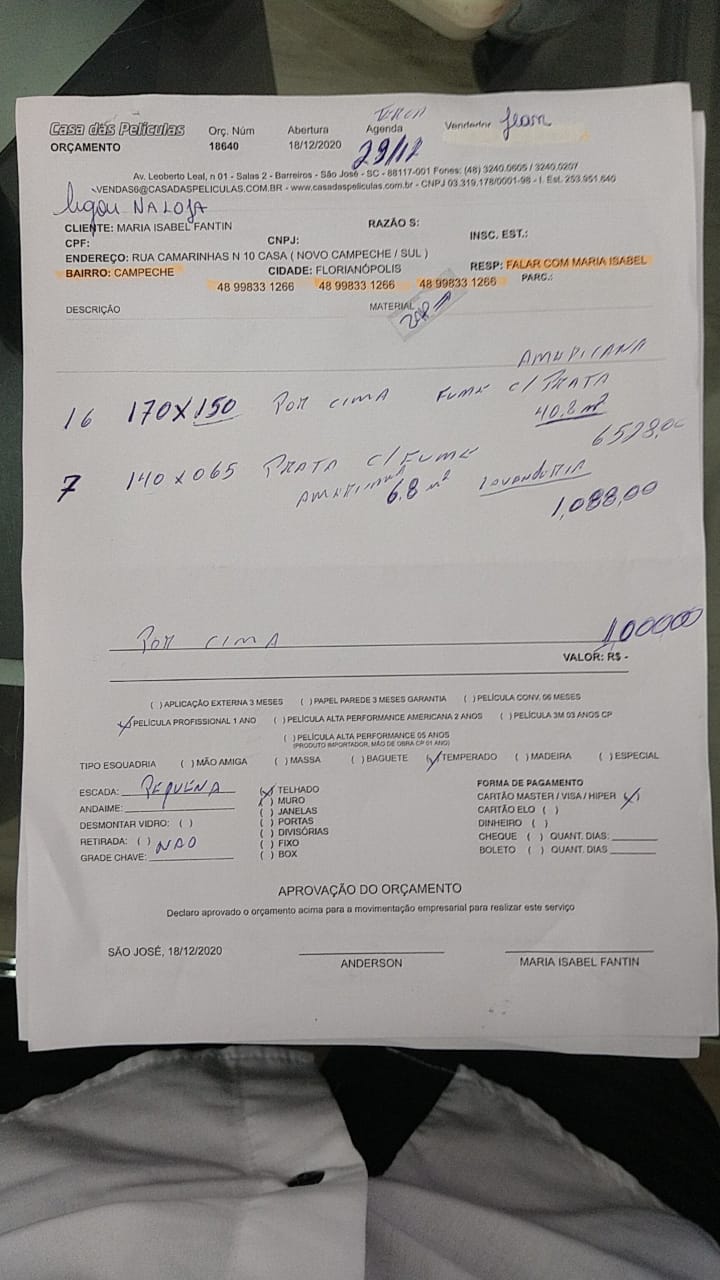 Casa das Películas
ORÇAMENTO
Orç. Núm
18640
Abertura
18/12/2020
TERÇA
Agenda
29/12
Vendedor Jean
Av. Leoberto Leal, n 01 - Salas 2 - Barreiros - São José - SC - 88117-001 Fones: (48) 3240.0605 / 3240.0207
VENDAS6@CASADASPELICULAS.COM.BR - www.casadaspeliculas.com.br - CNPJ 03.319.178/0001-98 - I. Est. 253.951.640
ligou NA LOJA
CLIENTE: MARIA ISABEL FANTIN
RAZÃO S:
CPF:
CNPJ:
INSC. EST.:
ENDEREÇO: RUA CAMARINHAS N 10 CASA ( NOVO CAMPECHE / SUL )
BAIRRO: CAMPECHE
CIDADE: FLORIANÓPOLIS
RESP: FALAR COM MARIA ISABEL
48 99833 1266 48 99833 1266 48 99833 1266
PARC.:
DESCRIÇÃO
MATERIAL
AMERICANA
16 170X150 POR CIMA FUME C/PRATA
40,8 m²
6528,00
7 140x065 PRATA C/FUME
AMERICANA 6.8 m² LAVANDERIA
1,088,00
POR CIMA
100000
VALOR: R$ -
( ) APLICAÇÃO EXTERNA 3 MESES ( ) PAPEL PAREDE 3 MESES GARANTIA ( ) PELÍCULA CONV. 06 MESES
( ) PELÍCULA PROFISSIONAL 1 ANO ( ) PELÍCULA ALTA PERFORMANCE AMERICANA 2 ANOS ( ) PELÍCULA 3M 03 ANOS CP
( ) PELÍCULA ALTA PERFORMANCE 05 ANOS
(PRODUTO IMPORTADOR, MÃO DE OBRA CP 01 ANO)
TIPO ESQUADRIA ( ) MÃO AMIGA ( ) MASSA ( ) BAGUETE ( ) TEMPERADO ( ) MADEIRA ( ) ESPECIAL
ESCADA: PEQUENA
ANDAIME:
DESMONTAR VIDRO: ( )
RETIRADA: ( ) NÃO
GRADE CHAVE:
( ) TELHADO
( ) MURO
( ) JANELAS
( ) PORTAS
( ) DIVISÓRIAS
( ) FIXO
( ) BOX
FORMA DE PAGAMENTO
CARTÃO MASTER / VISA / HIPER
CARTÃO ELO ( )
DINHEIRO ( )
CHEQUE ( ) QUANT. DIAS:
BOLETO ( ) QUANT. DIAS
APROVAÇÃO DO ORÇAMENTO
Declaro aprovado o orçamento acima para a movimentação empresarial para realizar este serviço
SÃO JOSÉ, 18/12/2020
ANDERSON
MARIA ISABEL FANTIN